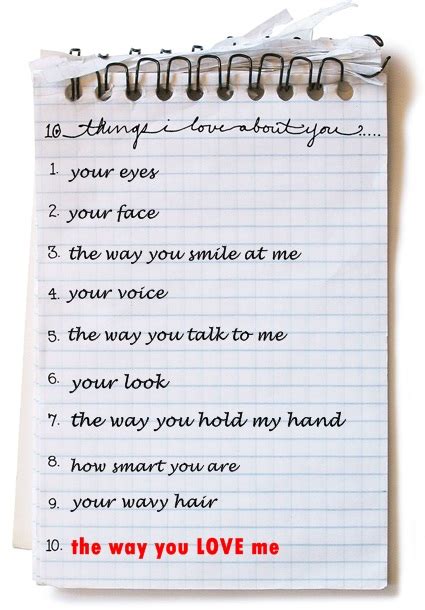 10 things i love about you.....
1. your eyes
2. your face
3. the way you smile at me
4. your voice
5. the way you talk to me
6. your look
7. the way you hold my hand
8. how smart you are
9. your wavy hair
10. the way you LOVE me